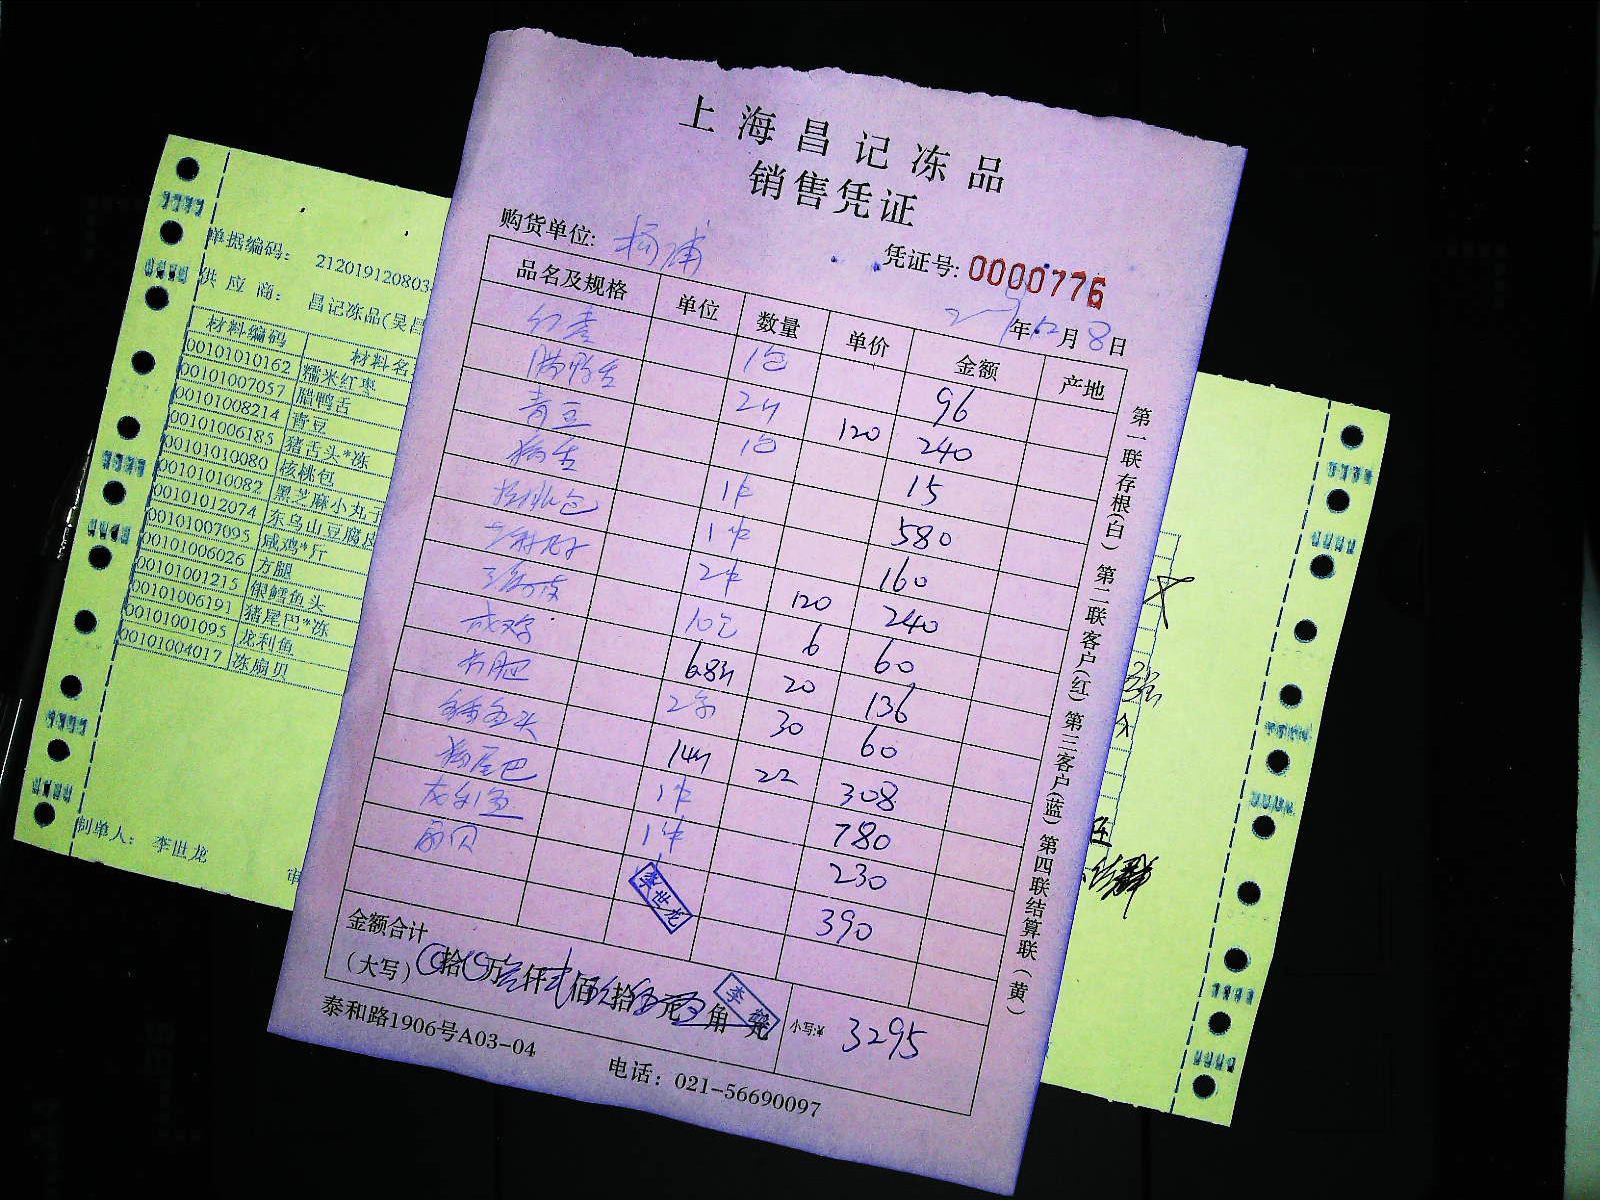 上海昌记冻品
销售凭证
购货单位: 杨浦
凭证号: 0000776
年12月8日
品名及规格 单位 数量 单价 金额 产地
红枣 1包 96
腊鸭舌 2斤 120 240
青豆 1包 15
猪舌 1件 580
核桃包 1件 160
2件 120 240
10包 6 60
咸鸡 6.8斤 20 136
方腿 2条 30 60
鳕鱼头 14斤 22 308
猪尾巴 1件 780
龙利鱼 1件 230
扇贝 390
李世龙
金额合计
(大写) 拾 万 仟 佰 拾 元 角
小写:¥ 3295
泰和路1906号A03-04
电话: 021-56690097
第一联存根(白) 第二联客户(红) 第三客户(蓝) 第四联结算联(黄)
单据编码: 212019120803
供应商: 昌记冻品(吴昌
材料编码 材料名
00101010162 糯米红枣
00101007057 腊鸭舌
00101008214 青豆
00101006185 猪舌头*冻
00101010080 核桃包
00101010082 黑芝麻小丸子
00101012074 东乌山豆腐皮
00101007095 咸鸡*斤
00101006026 方腿
00101001215 银鳕鱼头
00101006191 猪尾巴*冻
00101001095 龙利鱼
00101004017 冻扇贝
制单人: 李世龙
审